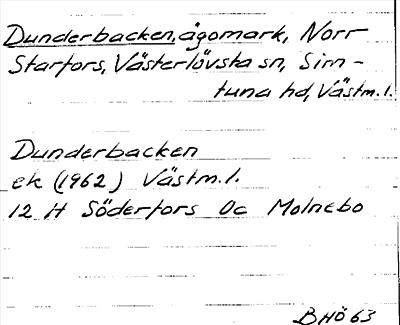 Dunderbacken, ägomark, Norr
Starfors, Västerlövsta sn, Sim-
tuna hd, Västm.l.
Dunderbacken
ek (1962) Västm.l.
12 H Söderfors 0c Molnebo
BHÖ 63